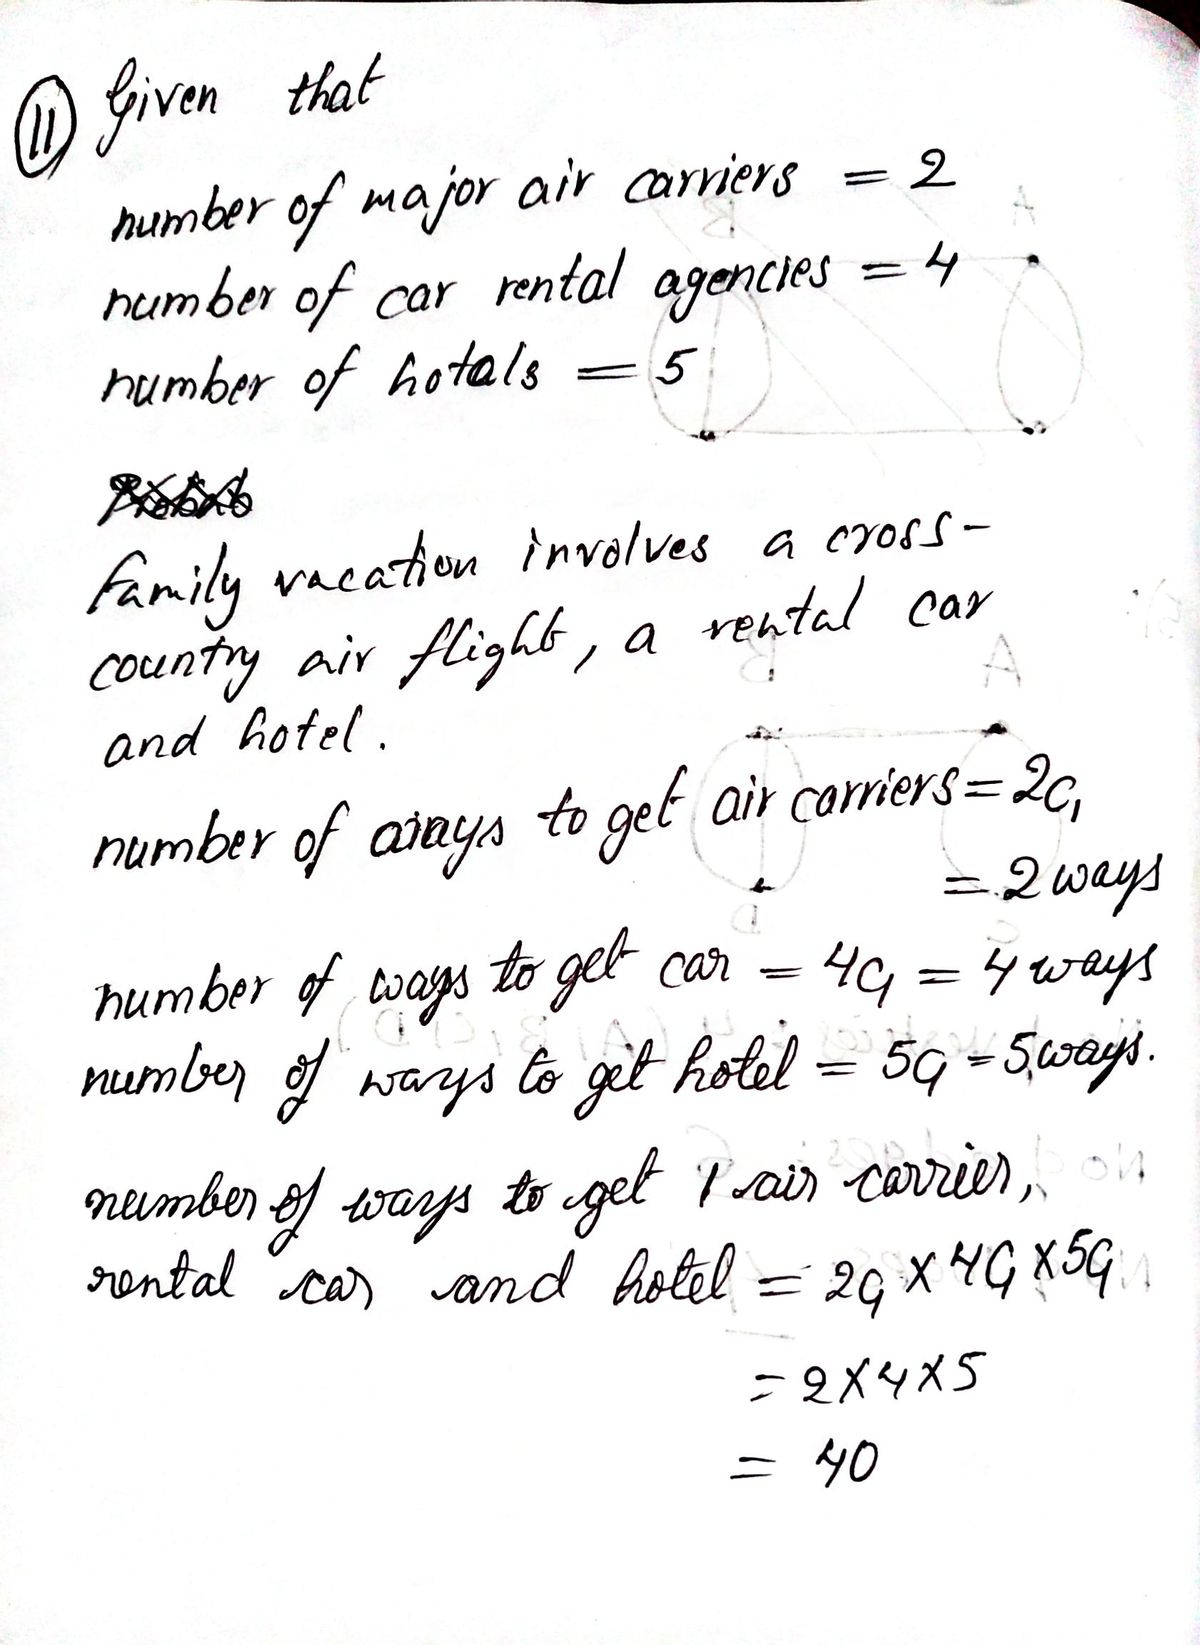 11 Given that
number of major air carriers = 2
number of car rental agencies = 4
number of hotals = 5
family vacation involves a cross-
country air flight, a rental car
and hotel.
number of ways to get air carriers = 2C1
= 2 ways
number of ways to get car = 4C1 = 4 ways
number of ways to get hotel = 5C1 = 5 ways.
number of ways to get 1 air carrier,
rental car and hotel = 2C1 X 4C1 X 5C1
= 2 X 4 X 5
= 40